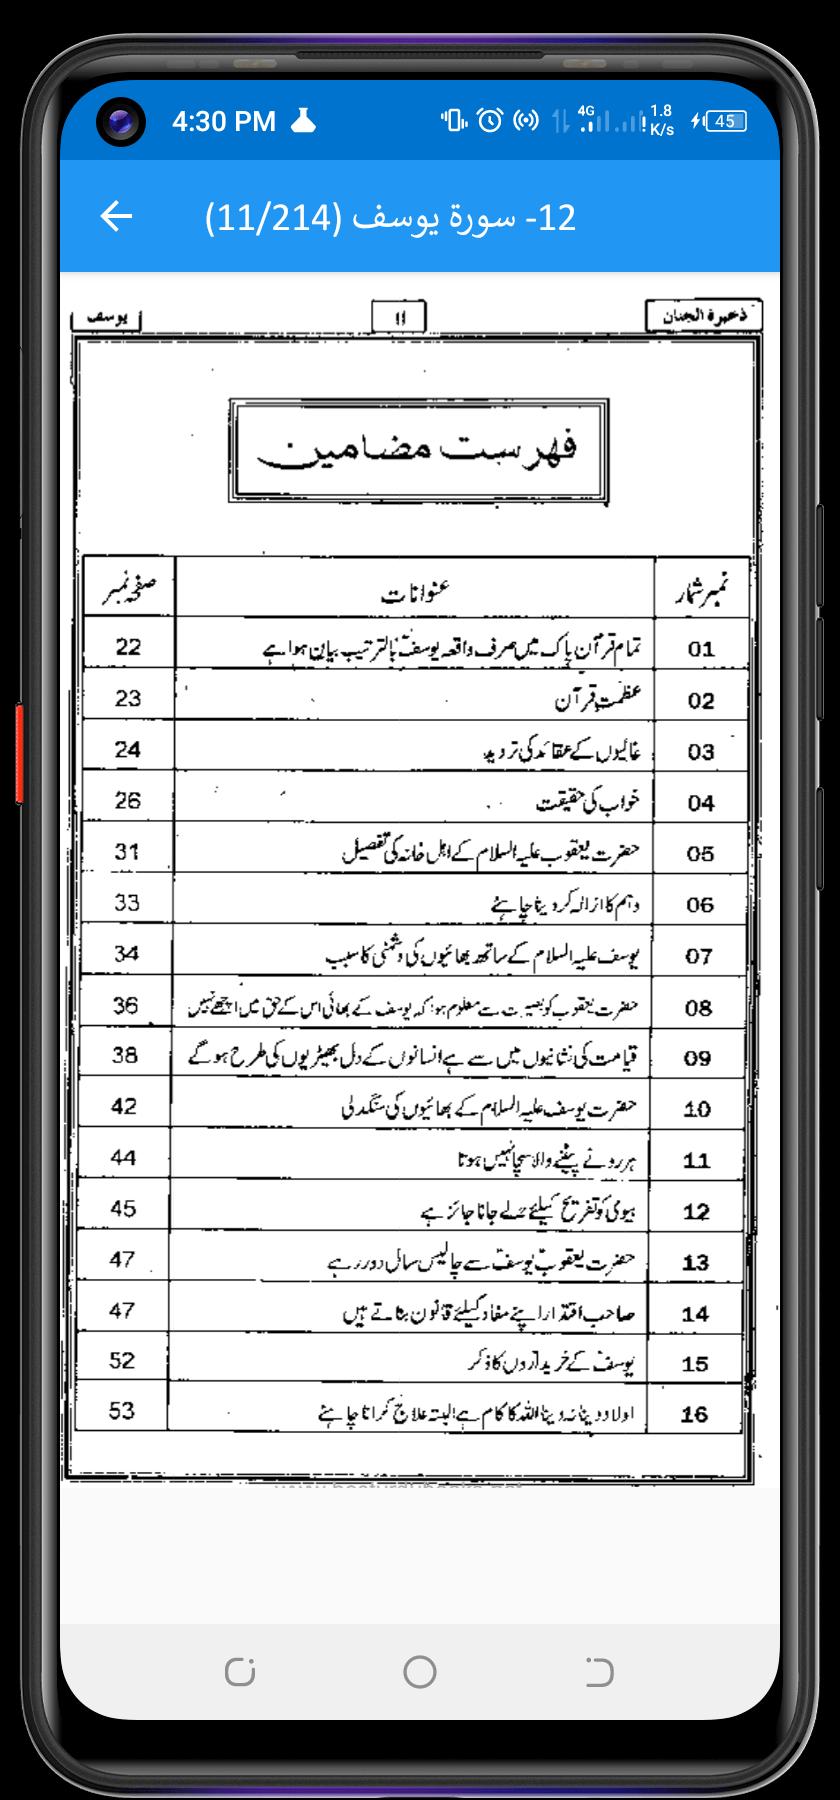 4:30 PM 4G 1.8 K/s 45
12- سورۃ یوسف (11/214)
ذخیرۃ الجنان 11 یوسف
فہرست مضامین
نمبر شمار عنوانات صفحہ نمبر
01 تمام قرآن پاک میں صرف واقعہ یوسفؑ بالترتیب بیان ہوا ہے 22
02 عظمتِ قرآن 23
03 غالیوں کے عقائد کی تردید 24
04 خواب کی حقیقت 26
05 حضرت یعقوب علیہ السلام کے اہل خانہ کی تفصیل 31
06 وہم کا ازالہ کر دینا چاہئے 33
07 یوسف علیہ السلام کے ساتھ بھائیوں کی دشمنی کا سبب 34
08 حضرت یعقوب کو بصیرت سے معلوم ہوا کہ یوسف کے بھائی اس کے حق میں اچھے نہیں 36
09 قیامت کی نشانیوں میں سے ہے انسانوں کے دل بھیڑیوں کی طرح ہو گے 38
10 حضرت یوسف علیہ السلام کے بھائیوں کی سنگدلی 42
11 ہر رونے پیٹنے والا سچا نہیں ہوتا 44
12 بیوی کو تفریح کیلئے لے جانا جائز ہے 45
13 حضرت یعقوبؑ یوسفؑ سے چالیس سال دور رہے 47
14 صاحب اقتدار اپنے مفاد کیلئے قانون بناتے ہیں 47
15 یوسفؑ کے خریداروں کا ذکر 52
16 اولاد دینا نہ دینا اللہ کا کام ہے البتہ علاج کرانا چاہئے 53